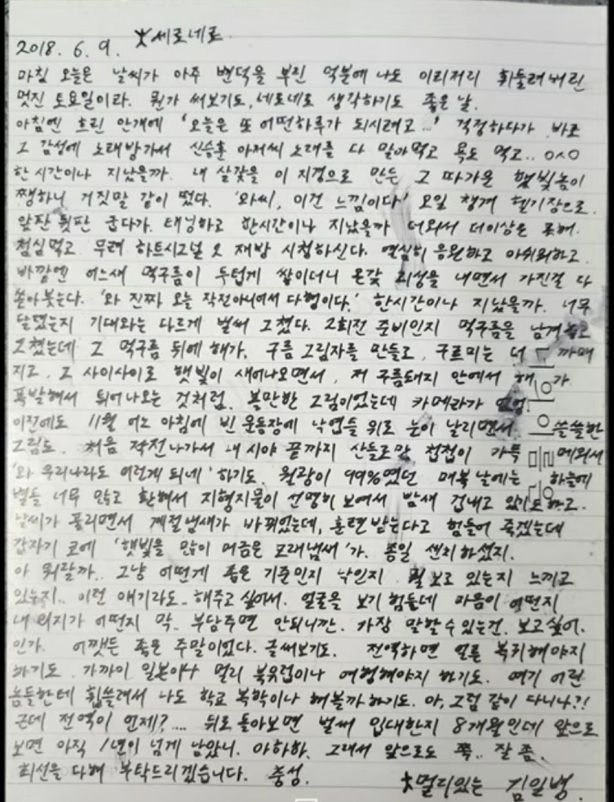 2018. 6. 9. 세로네로
마침 오늘은 날씨가 아주 변덕을 부린 덕분에 나도 이리저리 휘둘려버린
멋진 토요일이라. 뭔가 써보기도, 네로네로 생각하기도 좋은 날.
아침엔 흐린 안개에 '오늘은 또 어떤하루가 되시려고...' 걱정하다가 바로
그 감성에 노래방가서 신승훈 아저씨 노래를 다 말아먹고 욕도 먹고.. ㅇㅅㅇ
한시간이나 지났을까. 내 살갗을 이 지경으로 만든 그 따가운 햇빛놈이
쨍하니 거짓말 같이 떴다. '와씨, 이건 느낌이다' 오일 챙겨 헬기장으로.
앞판 뒷판 굽다가. 태닝하고 한시간이나 지났을까 더워서 더이상은 못해.
점심먹고 무려 하트시그널2 재방 시청하신다. 열심히 응원하고 아쉬워하고.
바깥엔 어느새 먹구름이 두텁게 쌓이더니 온갖 괴성을 내면서 가진걸 다
쏟아붓는다. '와 진짜 오늘 작전아니여서 다행이다.' 한시간이나 지났을까. 너무
달렸는지 기대와는 다르게 벌써 그쳤다. 2회전 준비인지 먹구름을 남겨놓고
그쳤는데 그 먹구름 뒤에 해가. 구름 그림자를 만들고, 구르미는 더 까매
지고. 그 사이사이로 햇빛이 새어나오면서, 저 구름돼지 안에서 해가
폭발해서 튀어나오는 것처럼. 볼만한 그림이었는데 카메라가
이전에도 11월 어느 아침에 빈 운동장에 낙엽들 위로 눈이 날리면서 쓸쓸한
그림도. 처음 작전나가서 내 시야 끝까지 산들로만 첩첩이 가득 메워서
'와 우리나라도 이렇게 되네' 하기도. 월광이 99%였던 매복날에는 하늘에
별들 너무 많고 환해서 지형지물이 선명히 보여서 밤새 겁내고 있기도하고.
날씨가 풀리면서 계절냄새가 바뀌었는데, 훈련받는다고 힘들어 죽겠는데
갑자기 코에 '햇빛을 많이 머금은 모래냄새'가. 종일 센치하셨지.
아 뭐랄까.. 그냥 어떻게 좁은 기준인지 낙인지 뭘 보고 있는지 느끼고
있는지.. 이런 얘기라도.. 해주고 싶어서. 얼굴을 보기 힘든데 마음이 어떤지
내 의지가 어떤지 막.. 부담주면 안되니깐. 가장 말할수 있는건. 보고싶어.
인가. 어쨌든 좋은 주말이었다. 글써보기도. 전역하면 얼른 복귀해야지
하기도. 가까이 일본이나 멀리 북유럽이나 여행해야지 하기도. 여기 어린
놈들한테 휩쓸려서 나도 학교 복학이나 해볼까하기도. 아, 그럼 같이 다니나?!
근데 전역이 언제?.... 뒤로 돌아보면 벌써 입대한지 8개월인데 앞으로
보면 아직 1년이 넘게 남았니. 아하하. 그래서 앞으로도 쭉.. 잘 좀.
최선을 다해 부탁드리겠습니다. 충성.
멀리있는 김일병